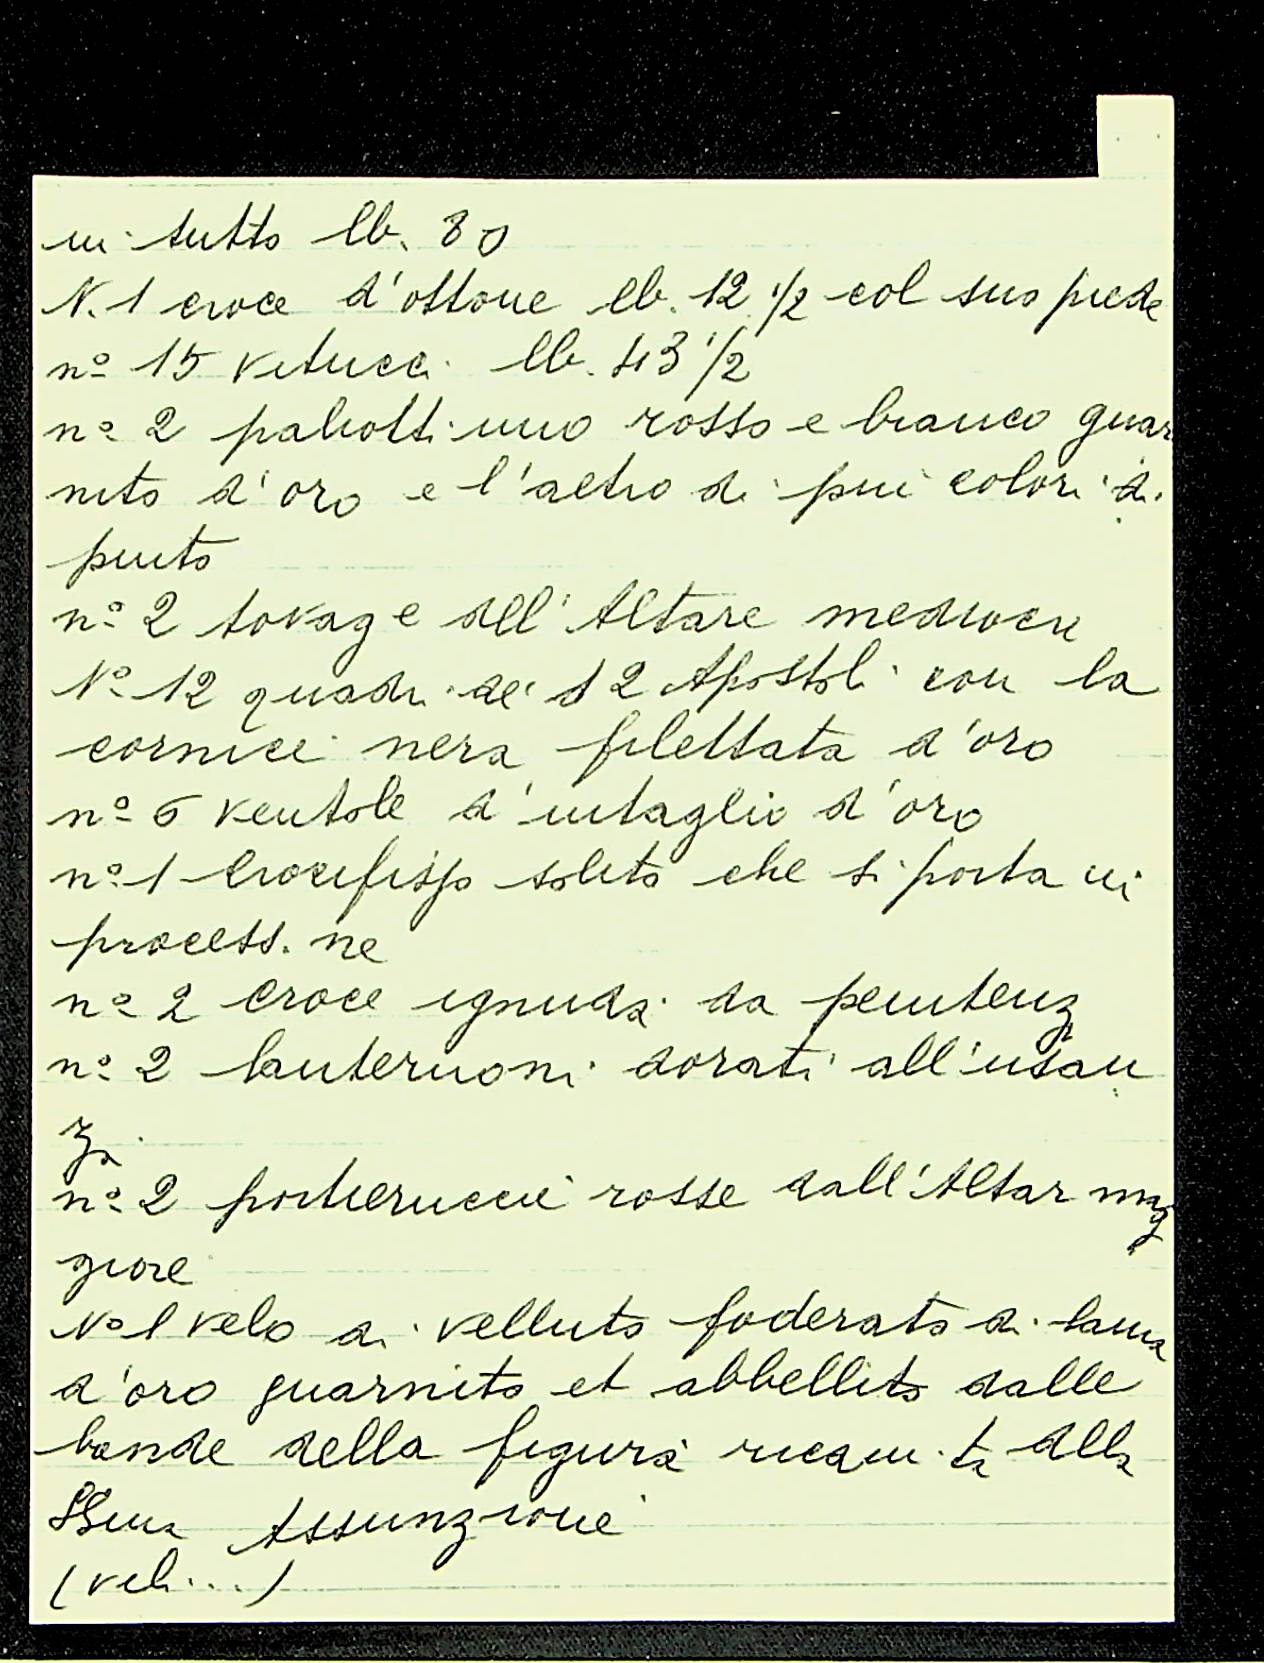 in tutto lb. 80
N. 1 croce d'ottone lb. 12 1/2 col suo piede
nº 15 vetucci lb. 43 1/2
nº 2 paliotti uno rosso e bianco guar
nito d'oro e l'altro di più colori di
pinto
nº 2 tovag e dell'Altare mediocri
Nº 12 quadri de' 12 Apostoli con la
cornice nera filettata d'oro
nº 6 ventole d'intaglio d'oro
nº 1 Crocifisso solito che si porta in
process. ne
nº 2 croce ignuda da penitenz
nº 2 lanternoni dorati all'usan
za
nº 2 portierucce rosse dall'Altar mag
giore
Nº 1 velo di velluto foderato di lama
d'oro guarnito et abbellito dalle
bande della figura ricam. ta della
SSma Assunzione
(veli...)